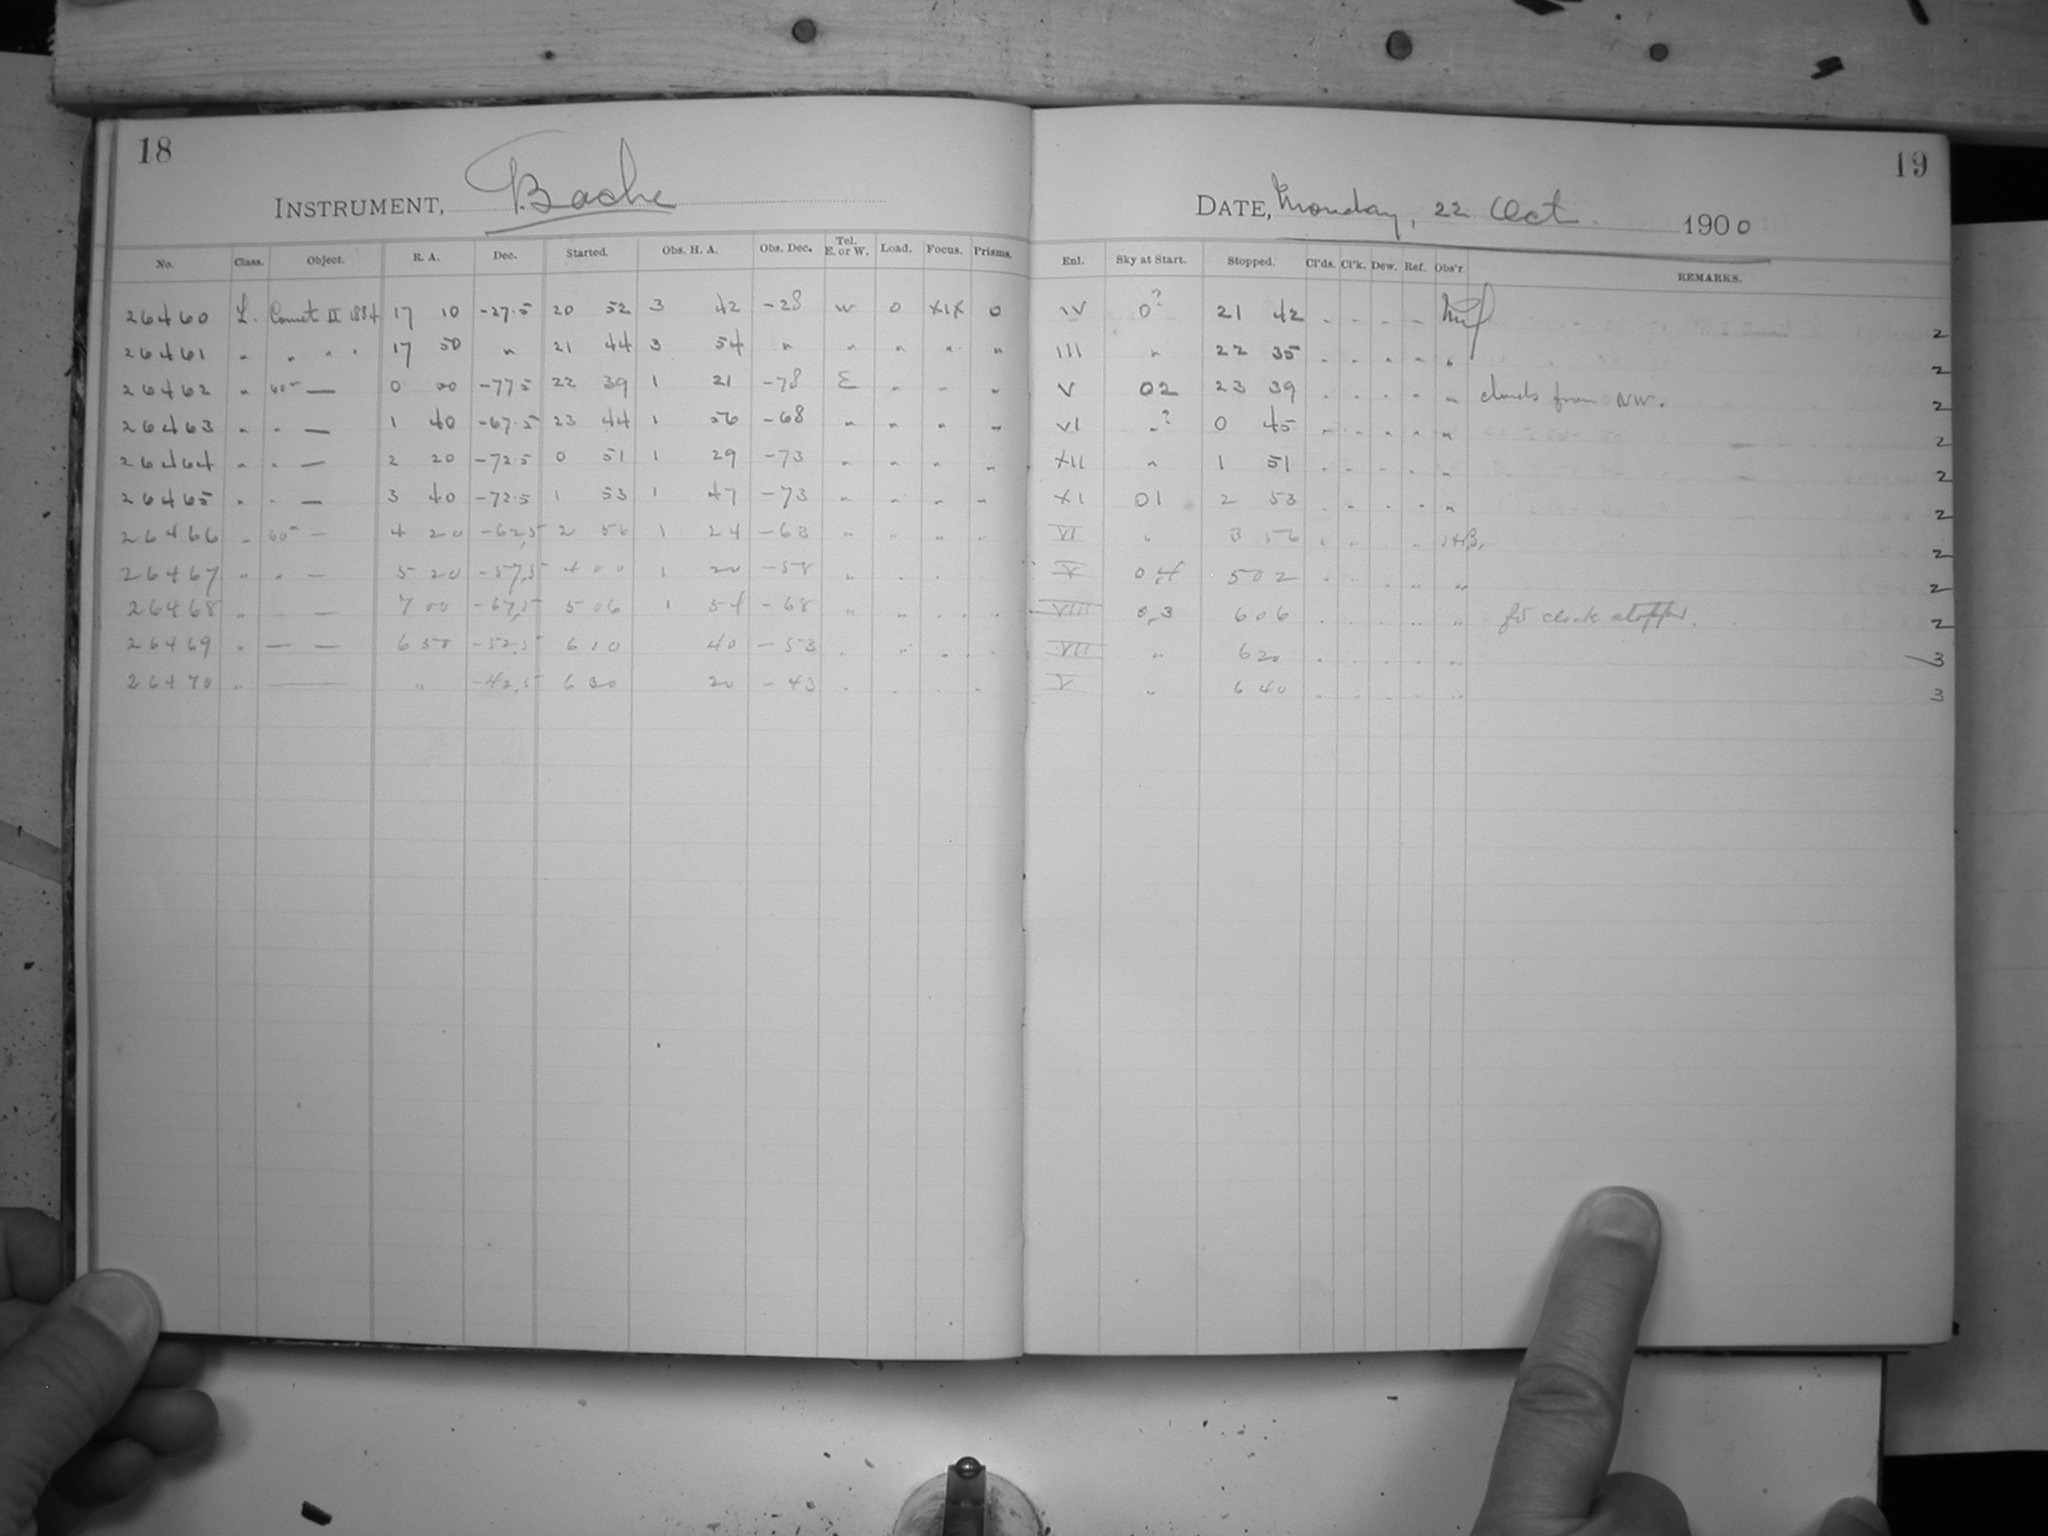 18
INSTRUMENT, Bache
No. Class. Object. R. A. Dec. Started. Obs. H. A. Obs. Dec. Tel. E. or W. Load. Focus. Prisms.
26460 L. Comet II 1884 17 10 -27.5 20 52 3 42 -28 W 0 XIX 0
26461 " " " " 17 50 " 21 44 3 54 " " " " "
26462 " 60m — 0 00 -77.5 22 39 1 21 -78 E " " "
26463 " " — 1 40 -67.5 23 44 1 56 -68 " " " "
26464 " " — 2 20 -72.5 0 51 1 29 -73 " " " "
26465 " " — 3 40 -72.5 1 53 1 47 -73 " " " "
26466 " 60m — 4 20 -62.5 2 56 1 24 -63 " " " "
26467 " " — 5 20 -57.5 4 00 1 20 -58 " " " "
26468 " " — 7 00 -67.5 5 06 1 54 -68 " " " "
26469 " — — 6 50 -52.5 6 10 40 -53 " " " "
26470 " — " -42.5 6 30 20 -43 " " " "
19
DATE, Monday, 22 Oct 1900
Enl. Sky at Start. Stopped. Cl'ds. Cl'k. Dew. Ref. Obs'r. REMARKS.
IV 0? 21 42 - - - - 2
III " 22 35 " " " " " 2
V 02 23 39 " " " " " clouds from NW. 2
VI "? 0 45 " " " " " 2
XII " 1 51 " " " " " 2
XI 01 2 53 " " " " " 2
VI " 3 56 " " " " 2
V 0,4 5 02 " " " " " 2
VIII 0,3 6 06 " " " " " clock stopped. 2
VII " 6 20 " " " " " 3
V " 6 40 " " " " " 3